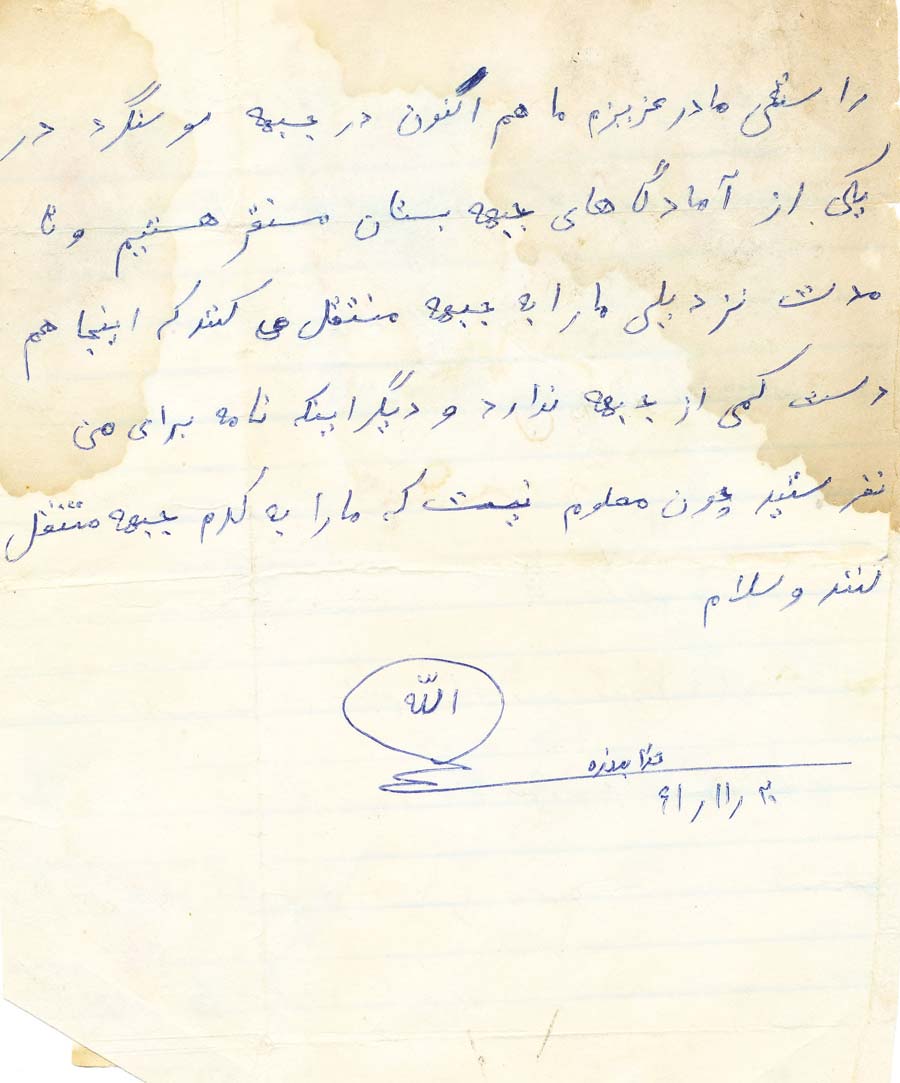 راستی مادر عزیزم ما هم اکنون در جبهه سوسنگرد در
یکی از آمادگاهای جبهه بستان مستقر هستیم و تا
مدت نزدیکی ما را به جبهه منتقل می کنند که اینجا هم
دست کمی از جبهه ندارد و دیگر اینکه نامه برای من
نفرستید چون معلوم نیست که ما را به کدام جبهه منتقل
کنند وسلام
الله
۶۱/۱۱/۲۰